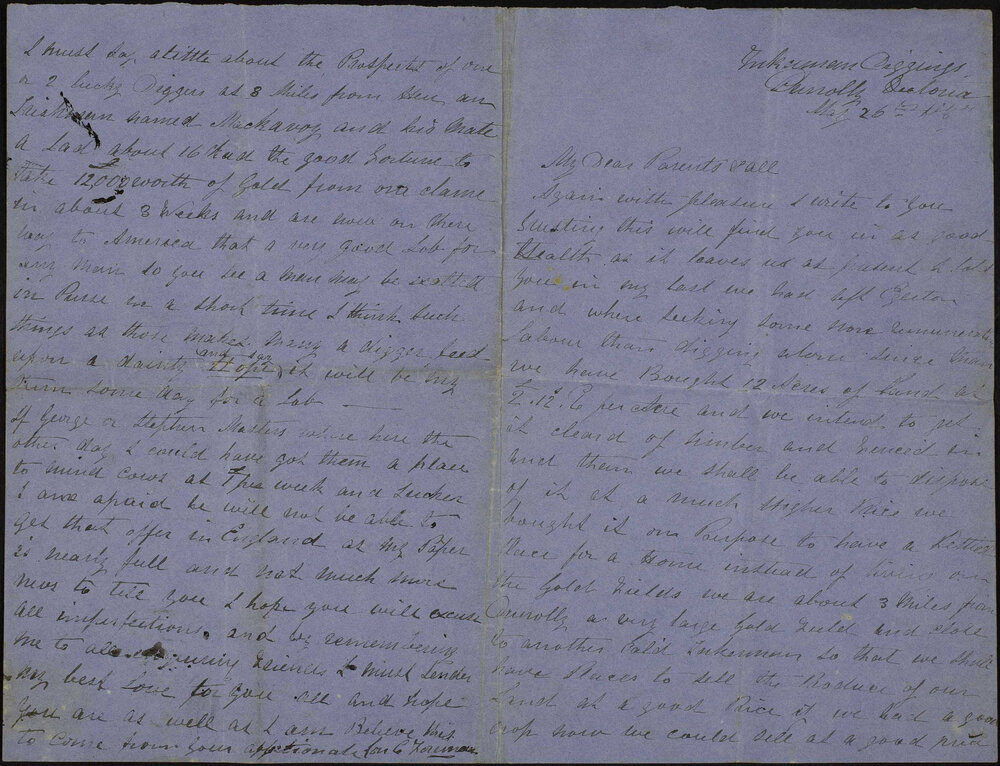 Inkerman Diggings
Dunolly Victoria
May 26th
My Dear Parents & all
Again with pleasure I write to you
trusting this will find you in as good
Health as it leaves us at present I told
you in my last we had left Egerton
and where seeking some more remunerative
labour than digging alone since than
we have Bought 12 Acres of Land at
per Acre and we intend to get
it cleard of timber and Fenced in
and then we shall be able to dispose
of it at a much Higher Price we
bought it on Purpose to have a Better
Place for a Home instead of living on
the Gold Fields we are about 3 Miles from
Dunolly a very large Gold Field and close
to another Calld Inkerman so that we shall
have Places to sell the Produce of our
Land at a good Price if we had a good
crop now we could sell at a good price
I must say alittle about the Prospects of one
or 2 lucky Diggers at 3 Miles from Here an
Irishman named Mackavoy and his Mate
a Lad about 16 had the good Fortune to
Take 12,000 worth of Gold from one clame
in about 3 Weeks and are now on there
way to America that a very good Job for
any Man so you see a man may be exalted
in Purse in a short time I think such
things as those makes many a digger feed
upon a dainty Hope and say it will be my
turn some day for a Job
If George or Stephen Masters where here the
other day I could have got them a place
to mind cows at 1 per week and Tucker
I am afraid he will not be able to
get that offer in England as my Paper
is nearly full and not much more
news to tell you I hope you will excuse
all imperfections and by remembering
me to all enquiring Friends I must tender
my best Love to you all and Hope
You are as well as I am Believe this
to come from your affectionate Son